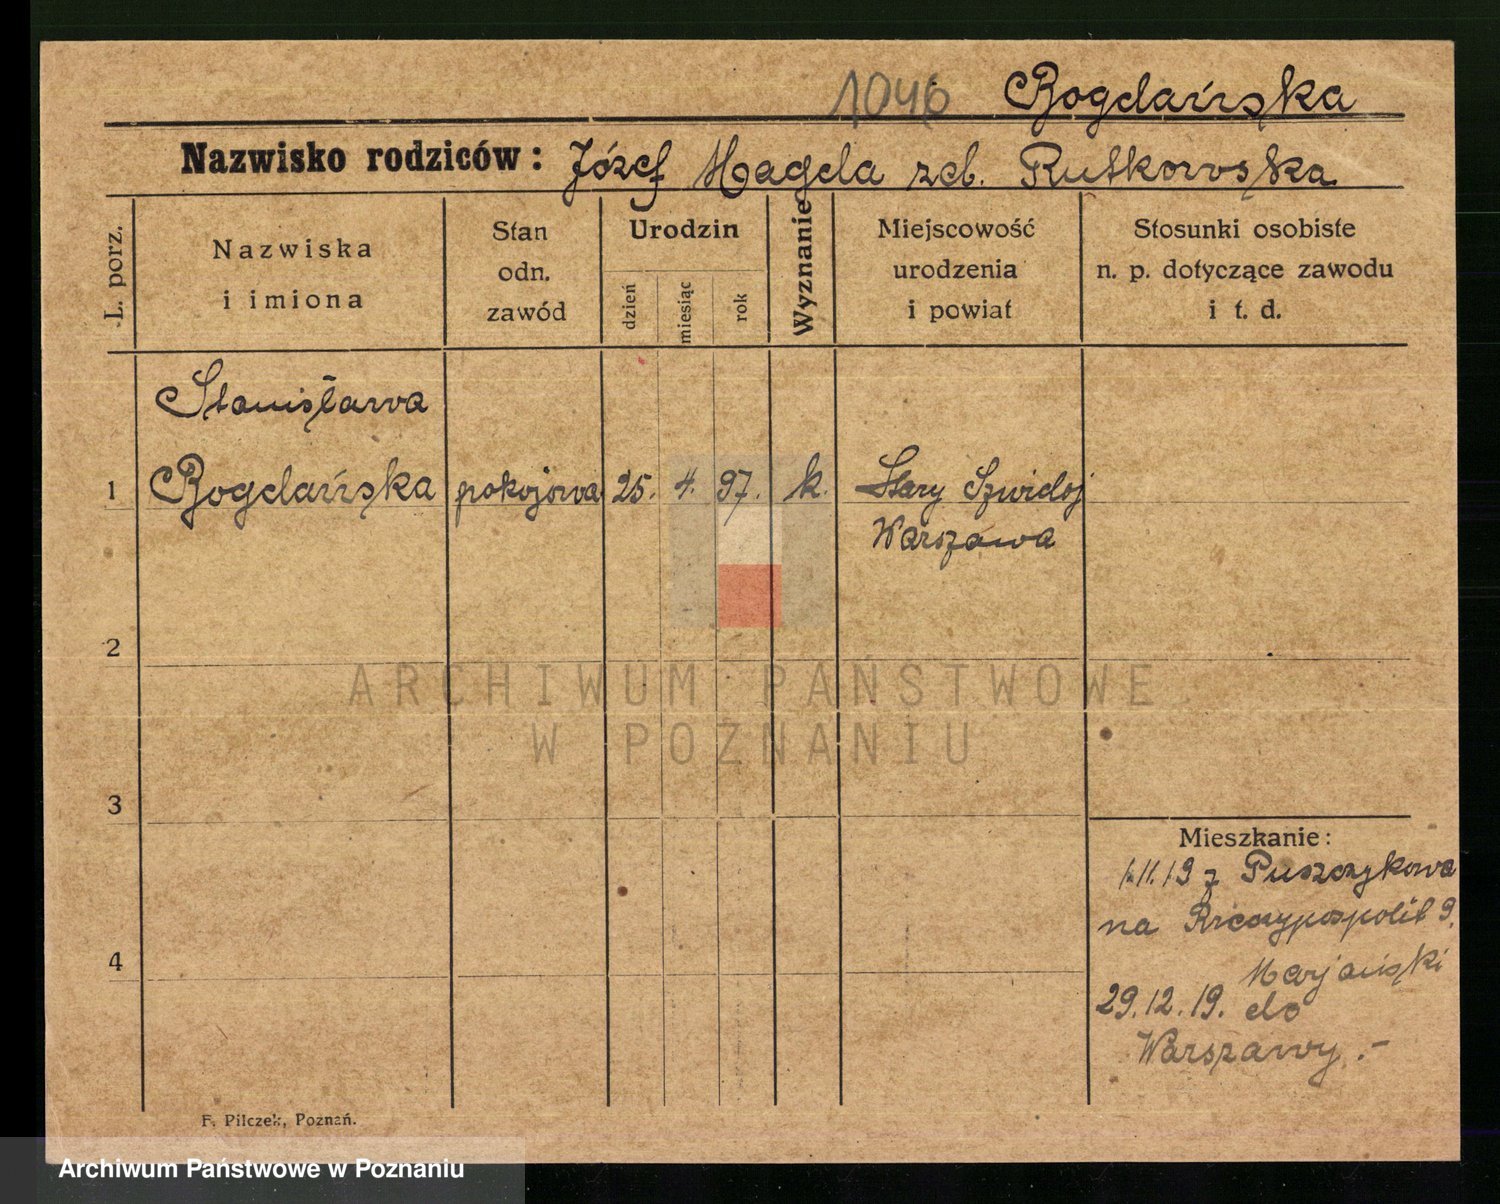 1046 Bogdańska
Nazwisko rodziców: Józef Magda zd. Rutkowska
L. porz.
Nazwiska
i imiona
Stan
odn.
zawód
Urodzin
dzień
miesiąc
rok
Wyznanie
Miejscowość
urodzenia
i powiat
Stosunki osobiste
n. p. dotyczące zawodu
i t. d.
Stanisława
1 Bogdańska pokojowa 25. 4. 97. k. Stary
Warszawa
2
3
4
Mieszkanie:
1.11.19 z Puszczykowa
na 9.
Marjański
29.12.19. do
Warszawy.-
F. Pilczek, Poznań.
ARCHIWUM PAŃSTWOWE
W POZNANIU
Archiwum Państwowe w Poznaniu